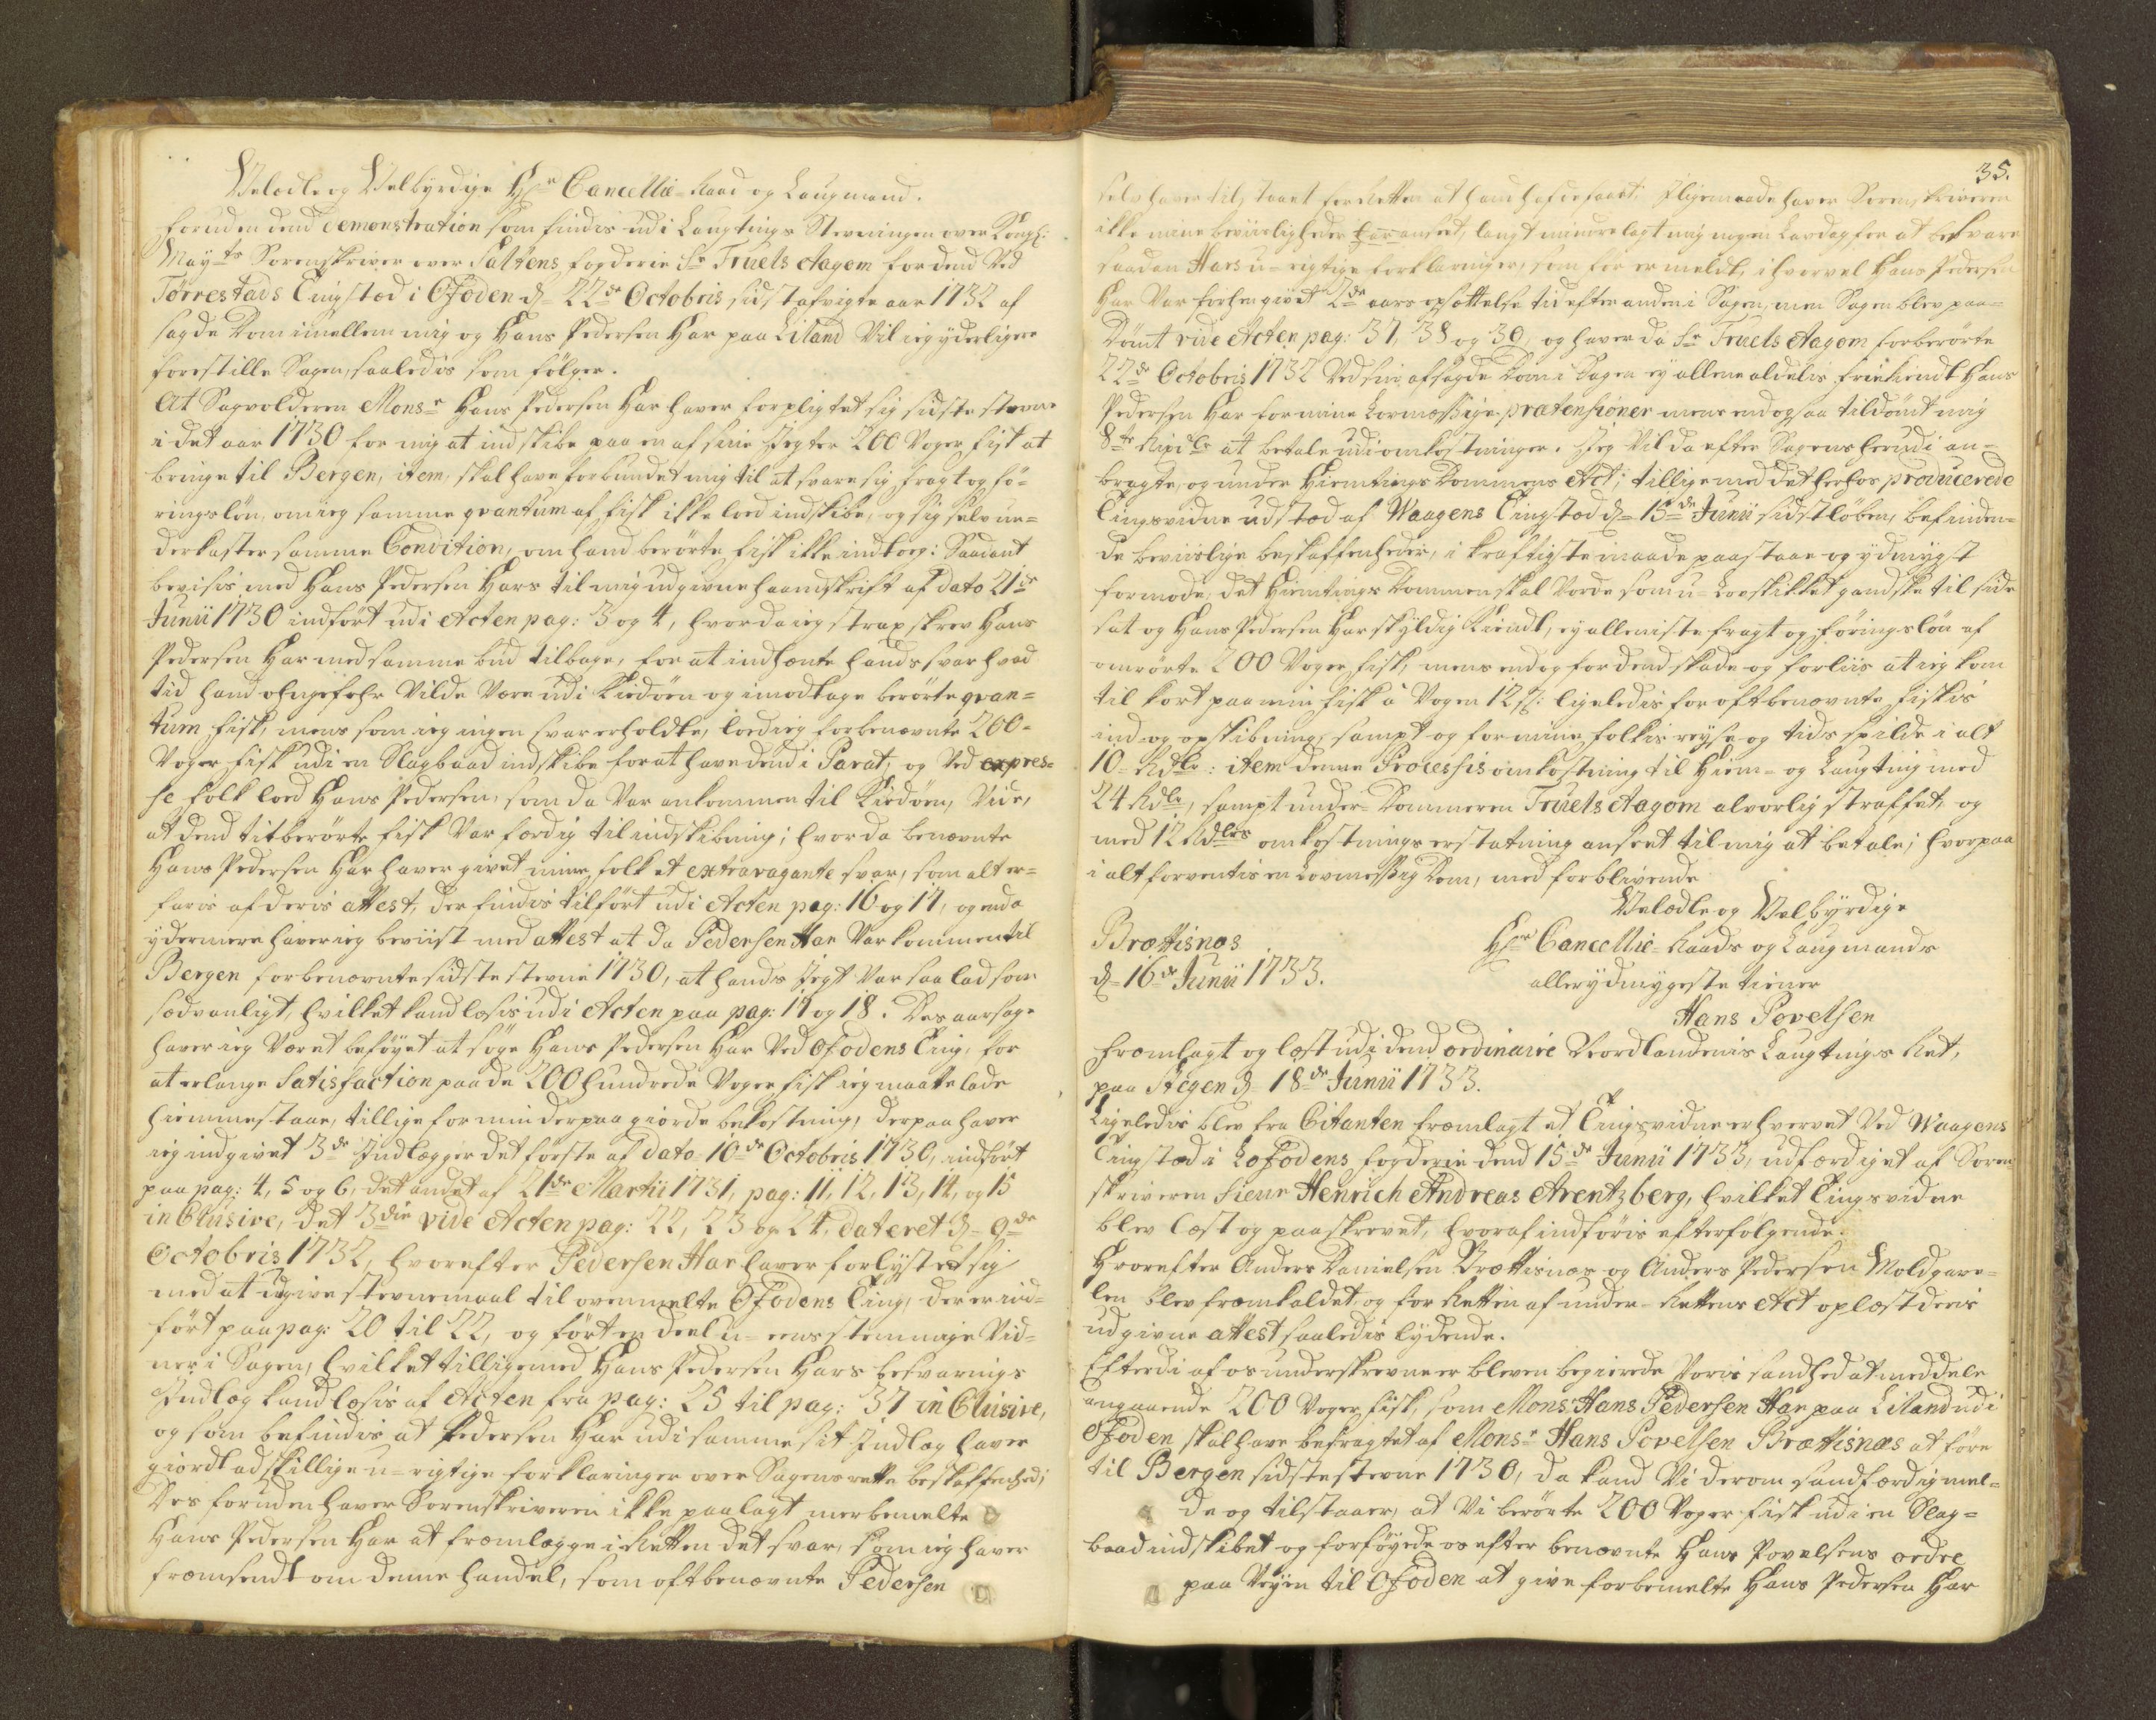 Velædle og Velbyrdige Hr Cancellie-Raad og Laugmand.
Foruden dend demonstration som findis udi Laugtings Stevningen over Kongl:
Mayts Sorenskriver over Saltens fogderie Sr Truels Aagom for dend Ved
Torrestads Tingsted i Ofoden d= 22de Octobris sidst afvigte aar 1732 af
sagde Dom imellem mig og Hans Pedersen Har paa Liland Vil ieg yderligere
forestille Sagen, saaledis som fölger.
At Sagvolderen Monsr Hans Pedersen Har haver forpligtet sig sidste stevne
i det aar 1730 for mig at indskibe paa en af sine Jegter 200 Voger fisk at
bringe til Bergen, item, skal have forbundet mig til at svare sig fragt og fö-
ringslön, om ieg samme qvantum af fisk ikke loed indskibe, og sig selv un-
derkaster samme Condition, om hand berörte fisk ikke indtog: Saadant
bevisis med Hans Pedersen Hars til mig udgivne haandskrift af dato 21de
Junii 1730 indfört udi Acten pag: 3 og 4, hvor da ieg strax skrev Hans
Pedersen Har med samme bud tilbage, for at indhænte hands svar hvad
tid hand ohngefehr Vilde Være udi Kiedöen og imodtage berörte qvan-
tum fisk, mens som ieg ingen svar erholdte, loed ieg forbenævnte 200-
Voger fisk udi en Slagbaad indskibe for at have dend i Parat, og Ved expres-
se folk loed Hans Pedersen, som da Var ankommen til Kiedöen, Vide,
at dend titberörte fisk Var færdig til indskibning; hvor da benævnte
Hans Pedersen Har haver givet mine folk et extravagante svar, som alt er-
faris af deris attest, der findis tilfört udi Acten pag: 16 og 17, og enda
ydermere haver ieg beviist med attest at da Pedersen Har Var kommen til
Bergen forbenævnte sidste stevne 1730, at hands Jegt Var saa lad som
sædvanligt, hvilket kand læsis udi Acten paa pag: 17 og 18. Des aarsage
haver ieg Været beföyet at söge Hans Pedersen Har Ved Ofodens Ting, for
at erlange Satisfaction paa de 200 hundrede Voger fisk ieg maatte lade
hiemmestaae, tillige for min derpaa giorde bekostning, derpaa haver
ieg indgivet 3de Indlægger det förste af dato 10de Octobris 1730, indfört
paa pag: 4, 5 og 6, det andet af 21de Martii 1731, pag: 11, 12, 13, 14, og 15
inClusive, det 3die vide Acten pag: 22, 23 og 24, dateret d= 9de
Octobris 1732, hvorefter Pedersen Har haver forlystet sig
med at udgive stevnemaal til ovenmelte Ofodens Ting, der er ind-
fört paa pag: 20 til 22, og fört en deel u-eensstemmige Vid-
ner i Sagen, hvilket tilligemed Hans Pedersen Hars besvarnings
Indlæg kand læsis af Acten fra pag: 25 til pag: 37 inClusive,
og som befindis at Pedersen Har udi samme sit Indlæg haver
giordt adskillige u-rigtige forklaringer over Sagens rette beskaffenhed;
Des foruden haver Sorenskriveren ikke paalagt merbemelte
Hans Pedersen Har at fremlægge i Retten det svar, som ieg haver
fremsendt om denne handel, som oftbenævnte Pedersen
35.
selv haver tilstaaet for Retten at hand hafde faaet. Iligemaade haver Sorenskriveren
ikke mine beviisligheder anseet, langt mindre lagt mig nogen Laudag for at besvare
saadan Hars u-rigtige forklaringer, som för er meldt, i hvorvel Hans Pedersen
Har Var forhen givet 2de aars opsættelse tid efter anden i Sagen, men Sagen blev paa-
Dömt vide Acten pag: 37, 38 og 39, og haver da Sr Truels Aagom forberörte
22de Octobris 1732 Ved sin afsagde Dom i Sagen ey allene aldelis friekiendt Hans
Pedersen Har for mine Lovmæssige prætensioner mens endogsaa tildömt mig
8te Rixdlr at betale udi omkostninger. Jeg Vil da efter Sagens herudi an-
bragte, og under Hiemtings Dommens Act, tillige med det herhos producerede
Tingsvidne udsted af Waagens Tingsted d= 15de Junii sidstleden, befinden-
de beviislige beskaffenheder, i kraftigste maade paastaae og ydmygst
formode, det Hiemtings Dommen skal Vorde som u-Lovskikket gandske til side
sat og Hans Pedersen Har skyldig Kiendt, ey alleniste fragt og föringslön af
omrörte 200 Voger fisk, mens endog for dend skade og forliis at ieg kom
til kort paa min fisk á Vogen 12 s: ligeledis for oftbenævnte fiskis
ind- og opskibning, sampt og for mine folkis reyse og tids spilde i alt
10 Rdlr: item denne Processis omkostning til Hiem- og Laugting med
24 Rdlr, sampt under-Dommeren Truels Aagom alvorlig straffet, og
med 12 Rdlrs omkostnings erstatning anseet til mig at betale; hvorpaa
i alt forventis en Lovmessig Dom, med forblivende
Velædle og Velbyrdige
Brættisnæs
Hr Cancellie-Raads og Laugmands
d= 16de Junii 1733.
allerydmygeste tiener
Hans Povelsen
Fremlagt og læst udi dend ordinaire Nordlandenis Laugtings Ret,
paa Stegen d 18de Junii 1733.
Ligeledis blev fra Citanten fremlagt et Tingsvidne erhvervet Ved Waagens
Tingsted i Lofodens fogderie dend 15de Junii 1733, udfærdiget af Soren
skriveren Sieur Henrich Andreas Arentzberg, hvilket Tingsvidne
blev læst og paaskrevet, hvoraf indföris efterfölgende.
Hvorefter Anders Danielsen Brættisnæs og Anders Pedersen Moldgare-
len blev fremkaldet og for Retten af under-Rettens Act oplæst deris
udgivne attest saaledis lydende.
Efterdi af os underskrevne er bleven begierede Voris sandhed at meddele
angaaende 200 Voger fisk, som Monsr Hans Pedersen Har paa Liland udi
Ofoden skal have befragtet af Monsr Hans Povelsen Brættisnæs at före
til Bergen sidste stevne 1730, da kand Vi derom sandfærdig mel-
de og tilstaaer, at Vi berörte 200 Voger fisk udi en Slag-
baad indskibet og forföyede os efter benævnte Hans Povelsens ordre
paa Veyen til Ofoden at give forbemelte Hans Pedersen Har